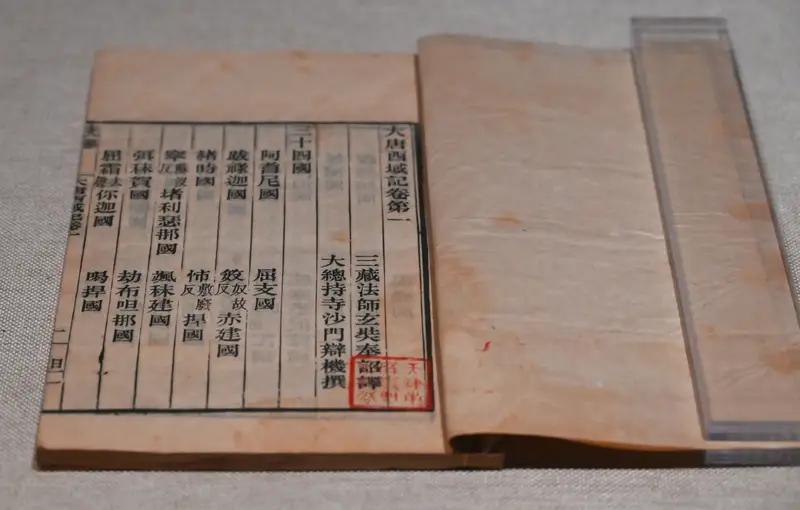 大唐西域記卷第一
三藏法師玄奘奉詔譯
大總持寺沙門辯機撰
三十四國
阿耆尼國 屈支國
跋祿迦國 笯奴故反赤建國
赭時國 㤄敷廢反捍國
窣反堵利瑟那國 颯秣建國
弭秣賀國 劫布呾那國
屈霜你迦國 喝捍國
大唐西域記卷一